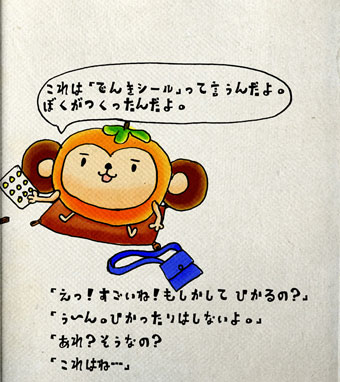 これは「でんきシール」って言うんだよ。
ぼくがつくったんだよ。
「えっ！すごいね！もしかして ぴかるの？」
「う〜ん。ぴかったりはしないよ。」
「あれ？そうなの？」
「これはね…」